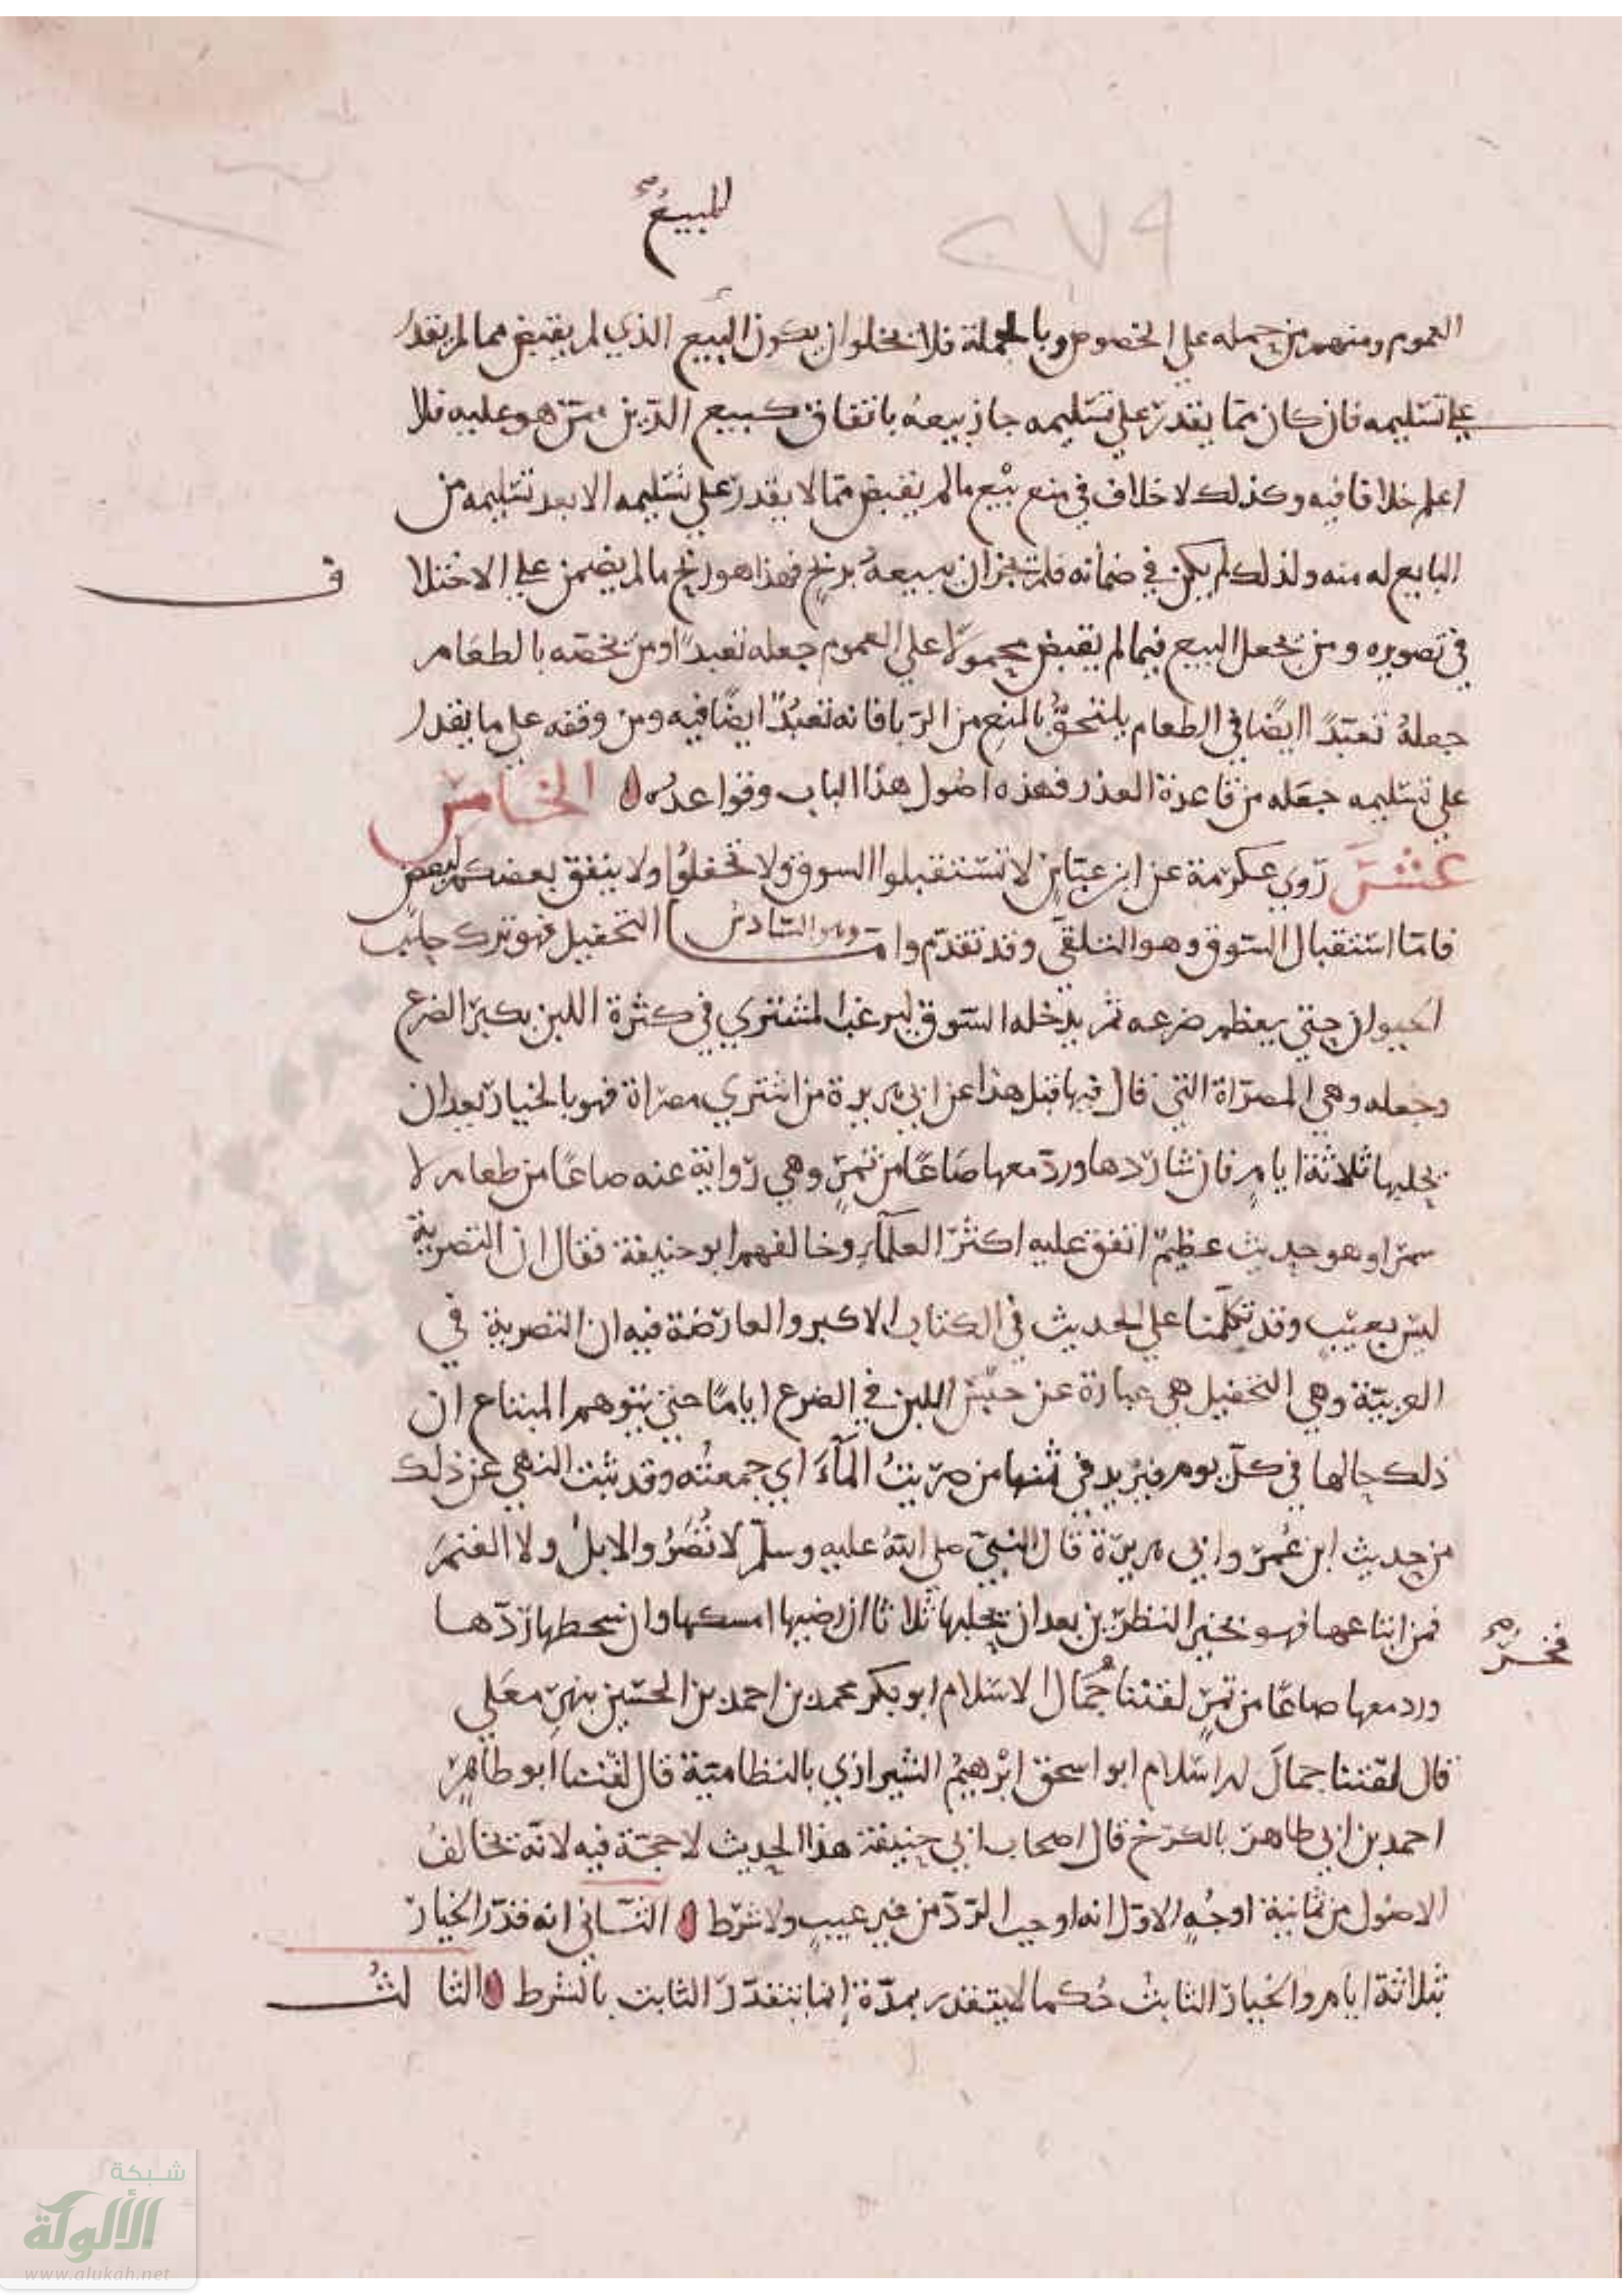 المبيع صح
٢٧٩
العموم ومنهم من حمله على الخصوص وبالجملة فلا يخلوا ان يكون البيع الذي لم يقبض مما لم يقدر
على تسليمه فان كان مما يقدر على تسليمه جاز بيعه باتفاق كبيع الدين ممن هو عليه فلا
اعلم خلافا فيه وكذلك لا خلاف في منع بيع ما لم يقبض مما لا يقدر على تسليمه الا بعد تسليمه من
البايع له منه ولذلك لم يكن في ضمانه فلم يجز ان يبيعه بربح فهذا هو ربح ما لم يضمن على الاختلا ف
في تصويره ومن يجعل البيع فيما لم يقبض محمولا على العموم جعله تعبدا ومن يخصه بالطعام
جعله تعبدا ايضا في الطعام يلتحق بالمنع من الربا فانه تعبد ايضا فيه ومن وقفه على ما يقدر
على تسليمه جعله من قاعدة العذر فهذه اصول هذا الباب وقواعده الخامس
عشر روي عكرمة عن ابن عباس لا تستقبلوا السوق ولا تحفلوا ولا ينفق بعضكم لبعض
فاما استقبال السوق وهو التلقي وقد تقدم واما وهو السادس التحفيل فهو ترك حلب
الحيوان حتى يعظم ضرعه ثم يدخله السوق ليرغب المشتري في كثرة اللبن بكبر الضرع
وجعله وهي المصراة التي قال فيها قبل هذا عن ابي هريرة من اشتري مصراة فهو بالخيار بعد ان
يحلبها ثلاثة ايام فان شا ردها ورد معها صاعا من تمر وهي رواية عنه صاعا من طعام لا
سمرا وهو حديث عظيم اتفق عليه اكثر العلماء وخالفهم ابو حنيفة فقال ان التصرية
ليس بعيب وقد تكلمنا على الحديث في الكتاب الاكبر والعارضة فيه ان التصرية في
العربية وهي التحفيل هي عبارة عن حبس اللبن في الضرع اياما حتى يتوهم المبتاع ان
ذلك حالها في كل يوم فيزيد في ثمنها من صريت الماء اي جمعته وقد ثبت النهي عن ذلك
من حديث ابن عمر وابي هريرة قال النبي صلى الله عليه وسلم لا تصروا الابل ولا الغنم
فمن ابتاعها فهو بخير النظرين بعد ان يحلبها ثلاثا ان رضيها امسكها وان سخطها ردها
ورد معها صاعا من تمر لقننا جمال الاسلام ابو بكر محمد بن احمد بن الحسين بنهر معلي
فخر صح
قال لقننا جمال الاسلام ابو اسحق ابرهيم الشيرازي بالنظامية قال لقننا ابو طاهر
احمد بن ابي طاهر بالكرخ قال اصحاب ابي حنيفة هذا الحديث لا حجة فيه لانه يخالف
الاصول من ثمانية اوجه الاول انه اوجب الرد من غير عيب ولا شرط الثاني انه قدر الخيار
بثلاثة ايام والخيار الثابت حكما لا يتقدر بمدة انما يتقدر الثابت بالشرط الثا لث
شبكة
الألوكة
www.alukah.net